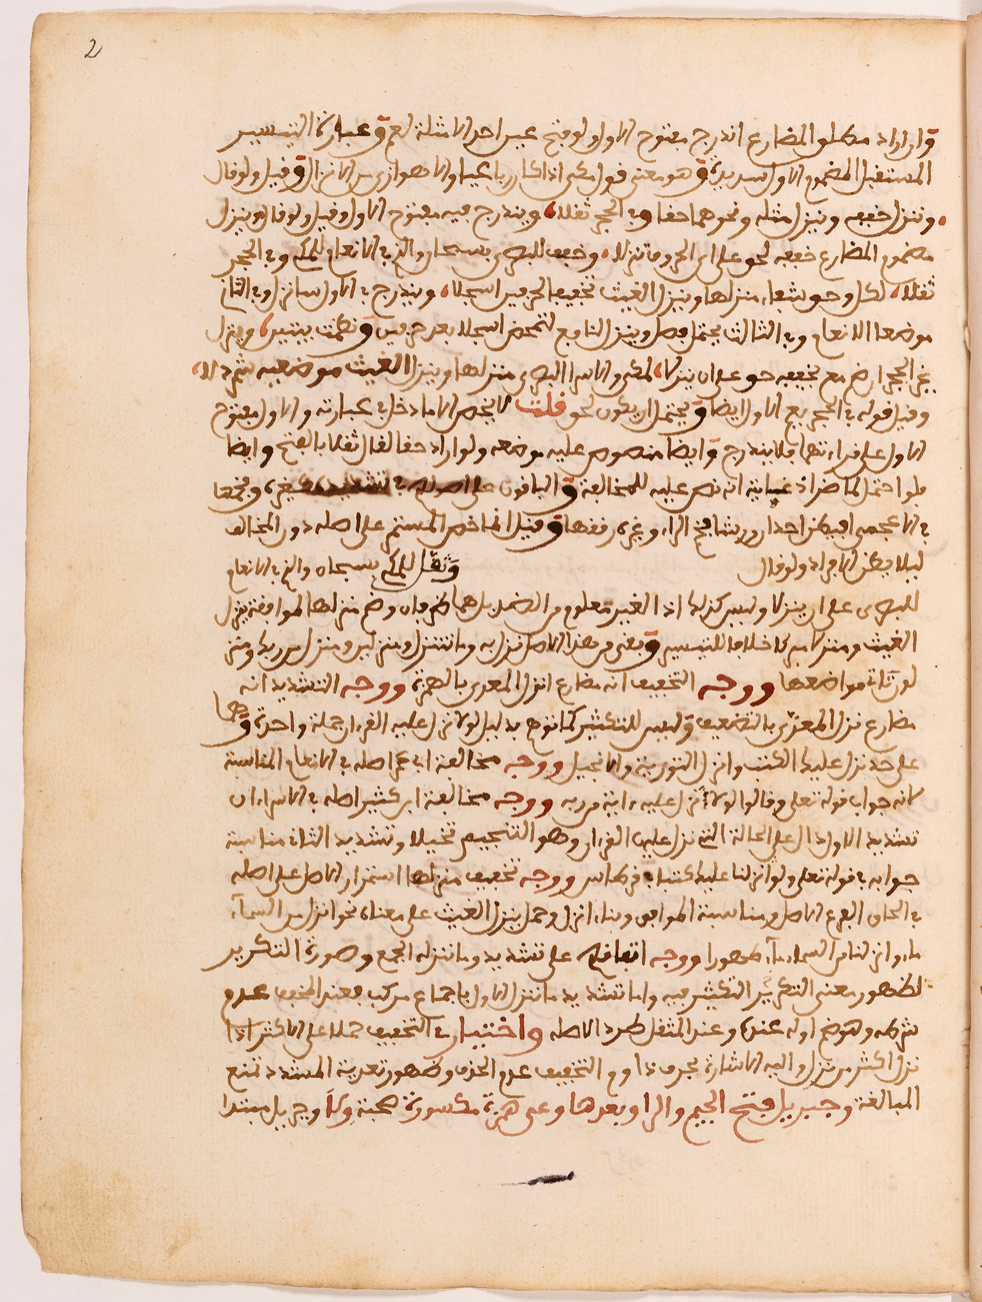 2
وان اراد مطلق المضارع اندرج مفتوح الاول ولو فتح عين احد الامثلة لعم وعبارة التيسير
المستقبل المضموم الاول سديدة وهو معنى قول مكي اذا كان رباعيا والاهوازي من الانزال وقيل ولو قال
وننزل خففه وينزل مثله وننزلهما حقا وفي الحجر ثقلا ويندرج فيه مفتوح الاول وقيل ولو قال وينزل
مضموم المضارع خففه لحق على اي الحروف تنزلا وخفف للبصري بسبحان والذي في الانعام للمكي وفي الحجر
ثقلا لكل وحق شفاء منزلها وينزل الغيث تخفيف الحرفين اسجلا ويندرج في الاول سانزل وفي الثاني
موضعا الانعام وفي الثالث يحتمل فصل وينزل التابع لتمحض اسجلا بعد حرفين ونظمت بيتين وينزل
غير الحجر اضمم مع تخففه حق على ان ينزلا لمكي والاسرا البصري منزلها وينزل الغيث موضعيه شم دلا
وقيل قوله في الحجر يع الاول ايضا ويحتمل ان يكون لحق قلت لا يخص الا ما دخل في عبارته والاول مفتوح
الاول على قراءتهما فلا يندرج وايضا منصوص عليه موضعه ولو اراد حقا لقال ثقلا بالفتح وايضا
فلو احتمل لما ضر اذ غايته انه نص عليه للمخالفة والباقون على اصولهم في
في الاعجمي افيكن احدا وورشا بفتح الرا وغيره رققها وقيل انما خص المستمر على اصله دون المخالف
ليلا يظن الانفراد ولو قال وثقل للمكي بسبحان والذي في الانعام
للبصري على ان ينزلا وليس كذلك اذا الغير معلوم من الضد بل هما طرفان وضم منزلها لموافقة ينزل
الغيث ومنزلا من لا خلافا للتيسير وبقي من هذا الاصل نزل به وما تتنزل ومنزلين ومنزل من ربك ومنز
لون تاتي مواضعها ووجه التخفيف انه مضارع انزل المعدى بالهمزة ووجه التشديد انه
مضارع نزل المعدى بالتضعيف وليس للتكثير كما توهم بدليل لولا نزل عليه القران جملة واحدة وهما
على حد نزل عليك الكتب وانزل التورية والانجيل ووجه مخالفة ابي عمرو اصله في الانعام المناسبة
لانه جواب قوله تعلى وقالوا لولا نزل عليه ءاية من ربه ووجه مخالفة ابن كثير اصله في الاسراء ان
تشديد الاول دال على الحالة التي نزل عليها القران وهو التنجيم تخيلا وتشديد الثاني مناسبة
جوابه في قوله تعلى ولو انزلنا عليك كتبا في قرطاس ووجه تخفيف منزلها استمرار الاصل على اصله
في الحاق الفرع الاصل ومناسبة الموافق وبناء انزل وحمل ينزل الغيث على معناه نحو انزل من السماء
ماء وانزلنا من السماء ماء طهورا ووجه اتفاقهم على تشديد وما ننزله الجمع وصورة التكرير
لظهور معنى التكرير التكثير فيه واما تشديد ما تنزل الاول باجماع مركب فعند المخفف عدم
شرطه وهو ضم اوله عنده وعند المثقل طرد الاصله واختياري التخفيف حملا على الاكثر اذا
نزل اكثر من تنزل واليه الاشارة بحرف ذا ومع التخفيف عدم الحذف وظهور تعدية المشدد تمنع
المبالغة وجبريل فتح الجيم والرا وبعدها وعى همزة مكسورة صحبة ولا وجبريل مبتدا